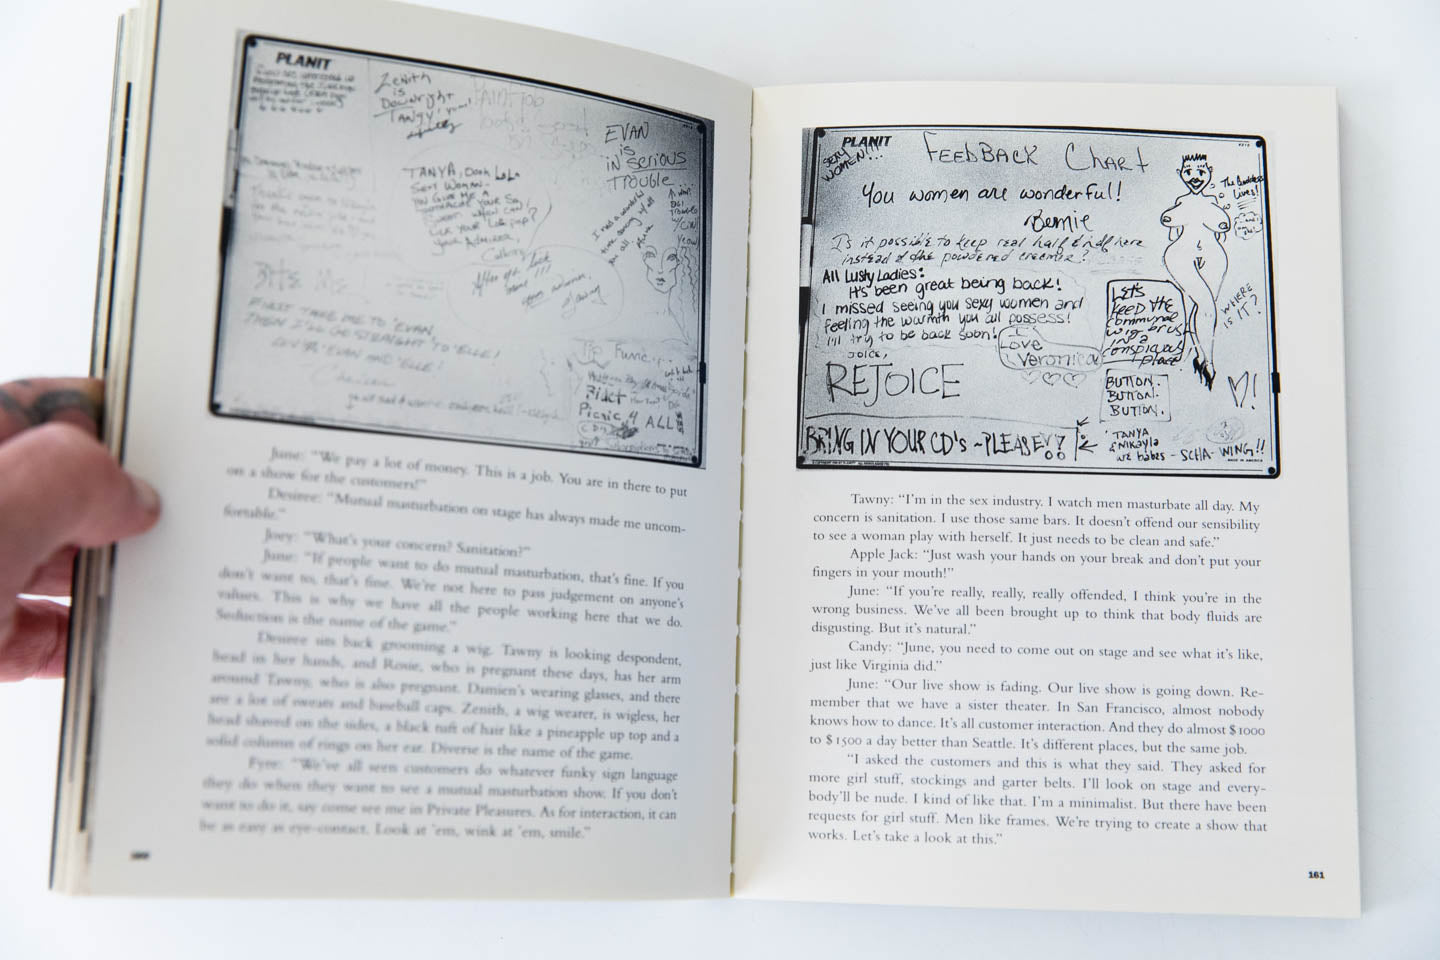 PLANIT
Zenith
is
Downright
TANGY, yum!
EVAN
is
iN serious
TROUBLE
TANYA, Oooh LaLa
Sexy Woman-
You Give me A
BITE ME
FIRST TAKE ME TO 'EVAN,
THEN I'LL GO STRAIGHT TO 'ELLE!
LUV YA 'EVAN AND 'ELLE'
Picnic 4 ALL
June: “We pay a lot of money. This is a job. You are in there to put
on a show for the customers!”
Desiree: “Mutual masturbation on stage has always made me uncom-
fortable.”
Joey: “What's your concern? Sanitation?”
June: “If people want to do mutual masturbation, that's fine. If you
don't want to, that's fine. We're not here to pass judgement on anyone's
values. This is why we have all the people working here that we do.
Seduction is the name of the game.”
Desiree sits back grooming a wig. Tawny is looking despondent,
head in her hands, and Rosie, who is pregnant these days, has her arm
around Tawny, who is also pregnant. Damien's wearing glasses, and there
are a lot of sweats and baseball caps. Zenith, a wig wearer, is wigless, her
head shaved on the sides, a black tuft of hair like a pineapple up top and a
solid column of rings on her ear. Diverse is the name of the game.
Fyre: “We've all seen customers do whatever funky sign language
they do when they want to see a mutual masturbation show. If you don't
want to do it, say come see me in Private Pleasures. As for interaction, it can
be as easy as eye-contact. Look at 'em, wink at 'em, smile.”
PLANIT
SEXY
WOMEN!!!
FEEDBACK CHART
You women are wonderful!
Bernie
The Goddess
Lives!
Is it possible to keep real half & half here
instead of the powdered creamer?
All Lusty Ladies:
It's been great being back!
I missed seeing you sexy women and
feeling the warmth you all possess!
I'll try to be back soon!
Love
Veronica
LET'S
FEED THE
communal
wig brush
IN a
conspicuous
place!
WHERE
IS IT?
JOICE,
REJOICE
BUTTON.
BUTTON.
BUTTON.
BRING IN YOUR CD's ~PLEASE!!?
TANYA
& Nikayla
we babes
- SCHA-WING!!
Tawny: “I'm in the sex industry. I watch men masturbate all day. My
concern is sanitation. I use those same bars. It doesn't offend our sensibility
to see a woman play with herself. It just needs to be clean and safe.”
Apple Jack: “Just wash your hands on your break and don't put your
fingers in your mouth!”
June: “If you're really, really, really offended, I think you're in the
wrong business. We've all been brought up to think that body fluids are
disgusting. But it's natural.”
Candy: “June, you need to come out on stage and see what it's like,
just like Virginia did.”
June: “Our live show is fading. Our live show is going down. Re-
member that we have a sister theater. In San Francisco, almost nobody
knows how to dance. It's all customer interaction. And they do almost $1000
to $1500 a day better than Seattle. It's different places, but the same job.
“I asked the customers and this is what they said. They asked for
more girl stuff, stockings and garter belts. I'll look on stage and every-
body'll be nude. I kind of like that. I'm a minimalist. But there have been
requests for girl stuff. Men like frames. We're trying to create a show that
works. Let's take a look at this.”
161